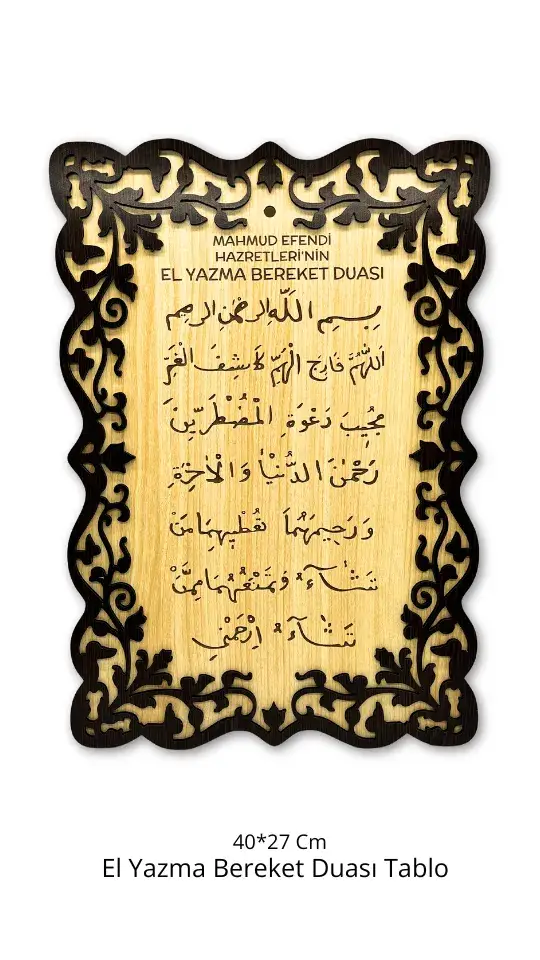 MAHMUD EFENDİ
HAZRETLERİ'NİN
EL YAZMA BEREKET DUASI
بِسْمِ اللّٰهِ الرحمٰنِ الرحيم
اَللّٰهُمَّ فَارِجَ الْهَمِّ كَاشِفَ الْغَمِّ
مُجِيبَ دَعْوَةِ الْمُضْطَرِّينَ
رَحْمٰنَ الدُّنْيَا وَالْاٰخِرَةِ
وَرَحِيمَهُمَا تُعْطِيهِمَا مَنْ
تَشَٓاءُ وَتَمْنَعُهُمَا مِمَّنْ
تَشَٓاءُ اِرْحَمْنِي
40*27 Cm
El Yazma Bereket Duası Tablo